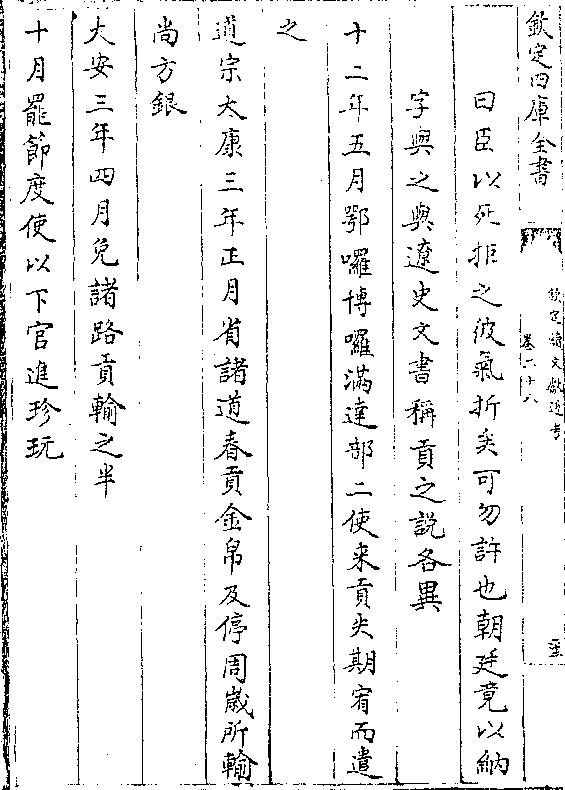 欽定四庫全書
欽定續文獻通考
卷二十八
曰臣以死拒之彼氣折矣可勿許也朝廷竟以納
字與之與遼史文書稱貢之説各異
十二年五月鄂囉博囉滿達部二使来貢失期宥而遣
之
道宗太康三年正月省諸道春貢金帛及停周嵗所輸
尚方銀
大安三年四月免諸路貢輸之半
十月罷節度使以下官進珍玩